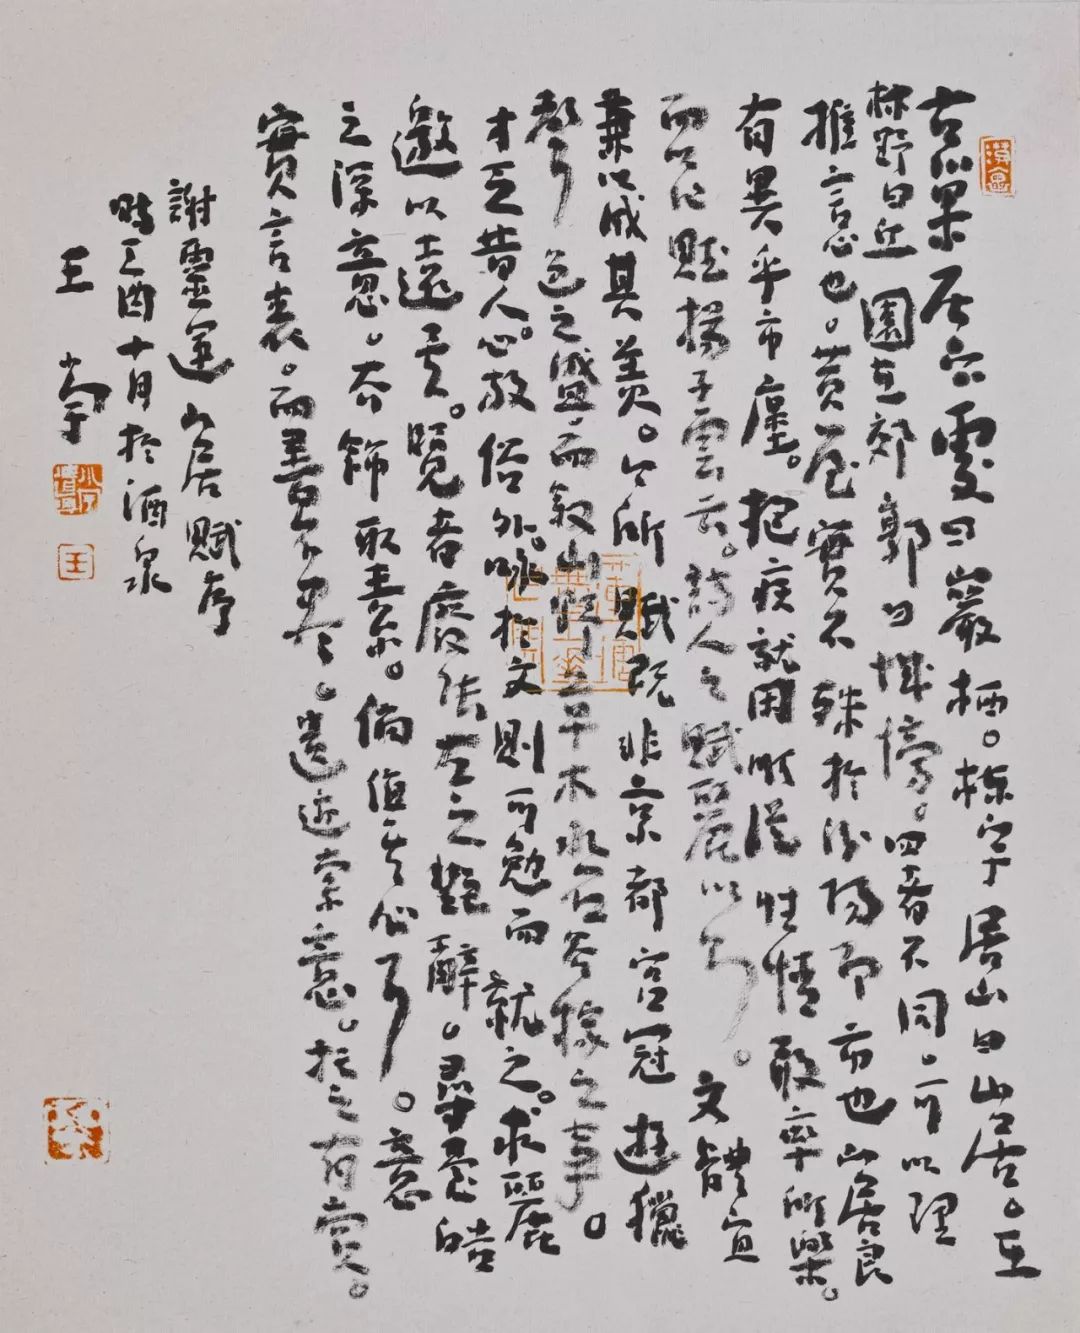 古巢居穴處曰巖栖。棟宇居山曰山居。在
林野曰丘園在郊郭曰城傍。四者不同。可以理
推言心也。黃屋實不殊於汾陽即事也山居良
有異乎市廛。抱疾就閑順從性情敢率所樂。
而以作賦揚子雲云。詩人之賦麗以則。文體宜
兼以成其美。今所賦既非京都宮冠遊獵
聲色之盛而敘山野草木水石谷稼之事。
才乏昔人。心放俗外。詠於文則可勉而就之。求麗
邈以遠矣。覽者廢張左之艷辭。尋臺皓
之深意。去飾取素。倘值其心耳。意
實言表。而書不盡。遺迹索意。托之有賞。
謝靈運山居賦序
時丁酉十月於酒泉
王
王